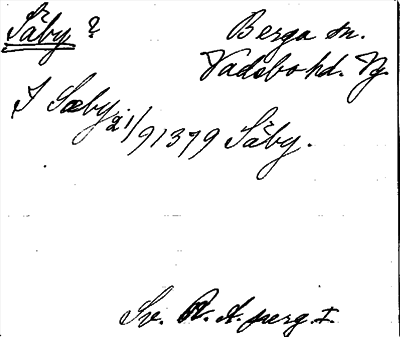 Säby ?
Berga sn.
Vadsbo hd. Vg.
J Sæby 21/9 1379 Säby.
Sv. R. A. perg. I.